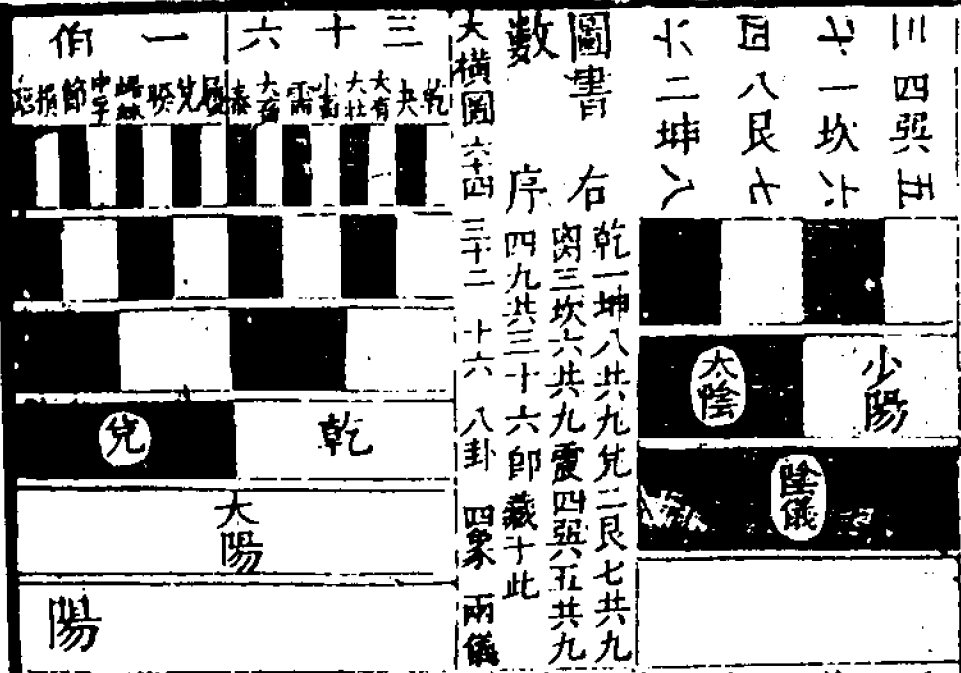 三四巽五
六一坎六
四八艮七
二坤八
少陽
太陰
陰儀
圖書右
數序
乾一坤八共九兌二艮七共九
离三坎六共九震四巽五共九
四九共三十六即藏于此
大橫圖 六十四 三十二 十六 八卦 四象 兩儀
三十六
一伯
乾 夬 大有 大壯 小畜 需 大畜 泰
履 兌 睽 歸妹 中孚 節 損 臨
乾
兌
太陽
陽